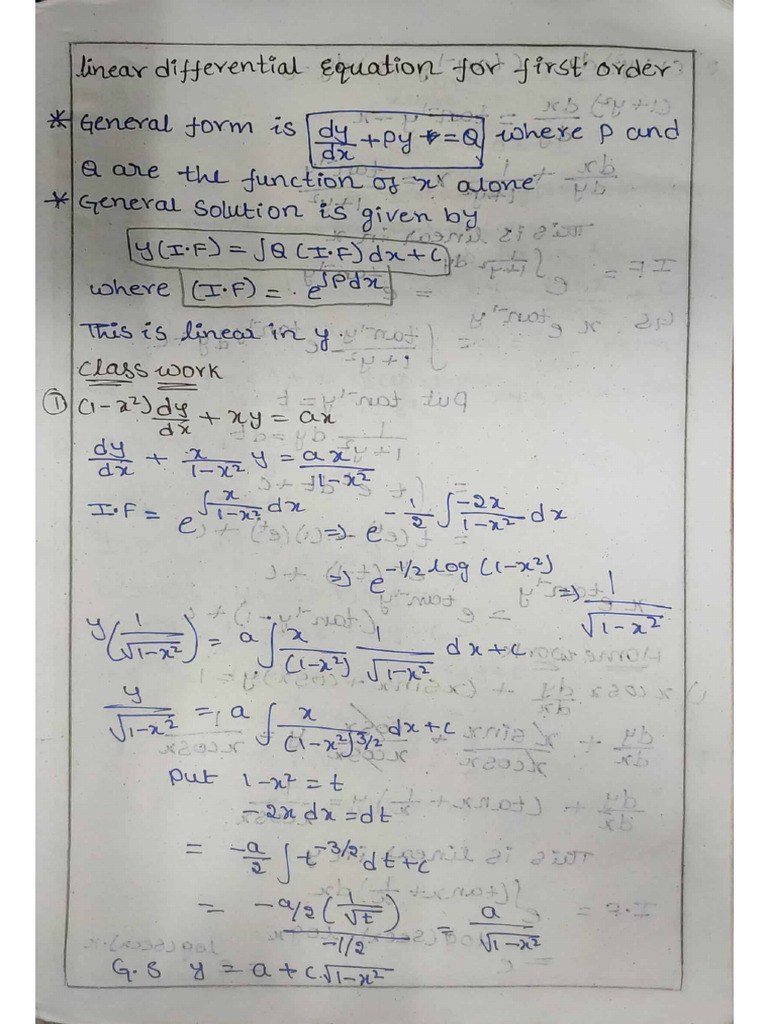 linear differential Equation for first order
* General form is dy/dx + Py = Q where P and
Q are the function of x alone
* General solution is given by
y(I.F) = ∫Q(I.F)dx + C
where (I.F) = e^∫Pdx
This is linear in y.
Class work
① (1-x²)dy/dx + xy = ax
dy/dx + x/(1-x²) y = ax/(1-x²)
I.F = e^∫x/(1-x²)dx => e^-1/2∫-2x/(1-x²)dx
=> e^-1/2 log(1-x²) => 1/√(1-x²)
y(1/√(1-x²)) = a∫x/(1-x²) 1/√(1-x²) dx + c
y/√(1-x²) = a∫x/(1-x²)^3/2 dx + c
Put 1-x² = t
-2x dx = dt
= -a/2∫t^-3/2 dt + c
= -a/2(1/√t)/-1/2 = a/√(1-x²)
G.S y = a + c.√(1-x²)